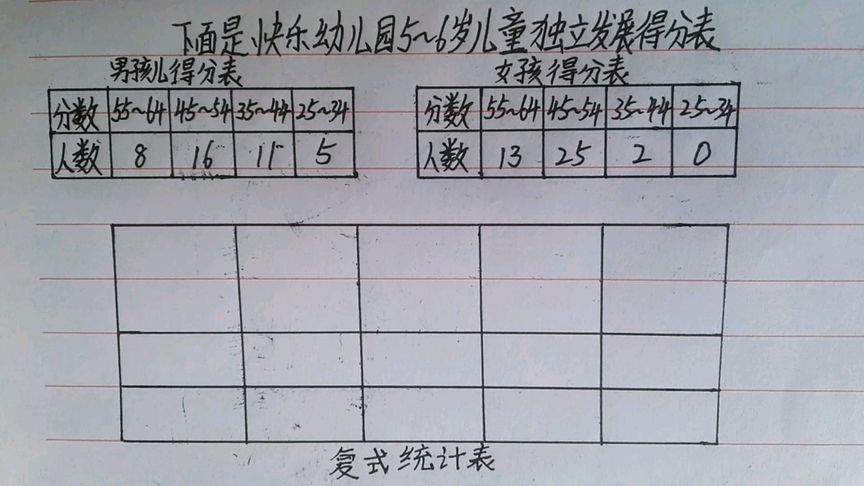 下面是快乐幼儿园5~6岁儿童独立发展得分表
男孩儿得分表
分数 55~64 45~54 35~44 25~34
人数 8 16 11 5
女孩得分表
分数 55~64 45~54 35~44 25~34
人数 13 25 2 0
复式统计表